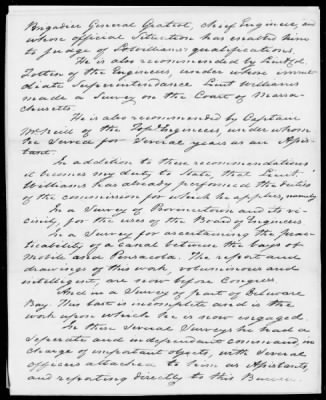 Brigadier General Gratiot, Chief Engineer, and
whose official Situation has enabled him
to judge of Lt. Williams qualifications.
He is also recommended by Lieut Col.
Totten of the Engineers, under whose imme
diate Superintendance Lieut Williams
made a Survey on the Coast of Massa
chusetts.
He is also recommended by Captain
McNeill of the Topl. Engineers, under whom
he Served for Several years as an Assis
tant.
In addition to these recommendations
it becomes my duty to State, that Lieut.
Williams has already performed the duties
of the commission for which he applies, namely
In a Survey of Provincetown and its vi-
cinity, for the use of the Board of Engineers
In a Survey for ascertaining the prac-
ticability of a canal between the bays of
Mobile and Pensacola. The report and
drawings of this work, voluminous and
intelligent, are now before Congress.
And in a Survey of part of Delaware
Bay. This last is incomplete and is the
work upon which he is now engaged.
In these Several Surveys he had a
Seperate and independant command, in
charge of important objects, with Several
officers attached to him as Assistants,
and reporting directly to this Bureau.